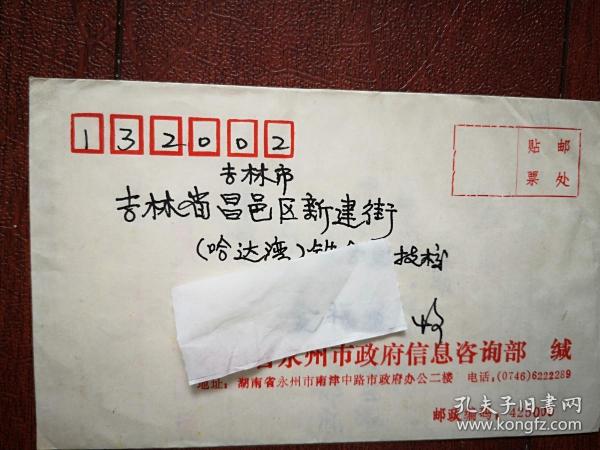 132002
贴 邮
票 处
吉林市
吉林省昌邑区新建街
(哈达湾) 技校
收
省永州市政府信息咨询部 缄
地址:湖南省永州市南津中路市政府办公二楼 电话:(0746)6222289
邮政编码:425000
孔夫子旧书网
www.kongfz.com